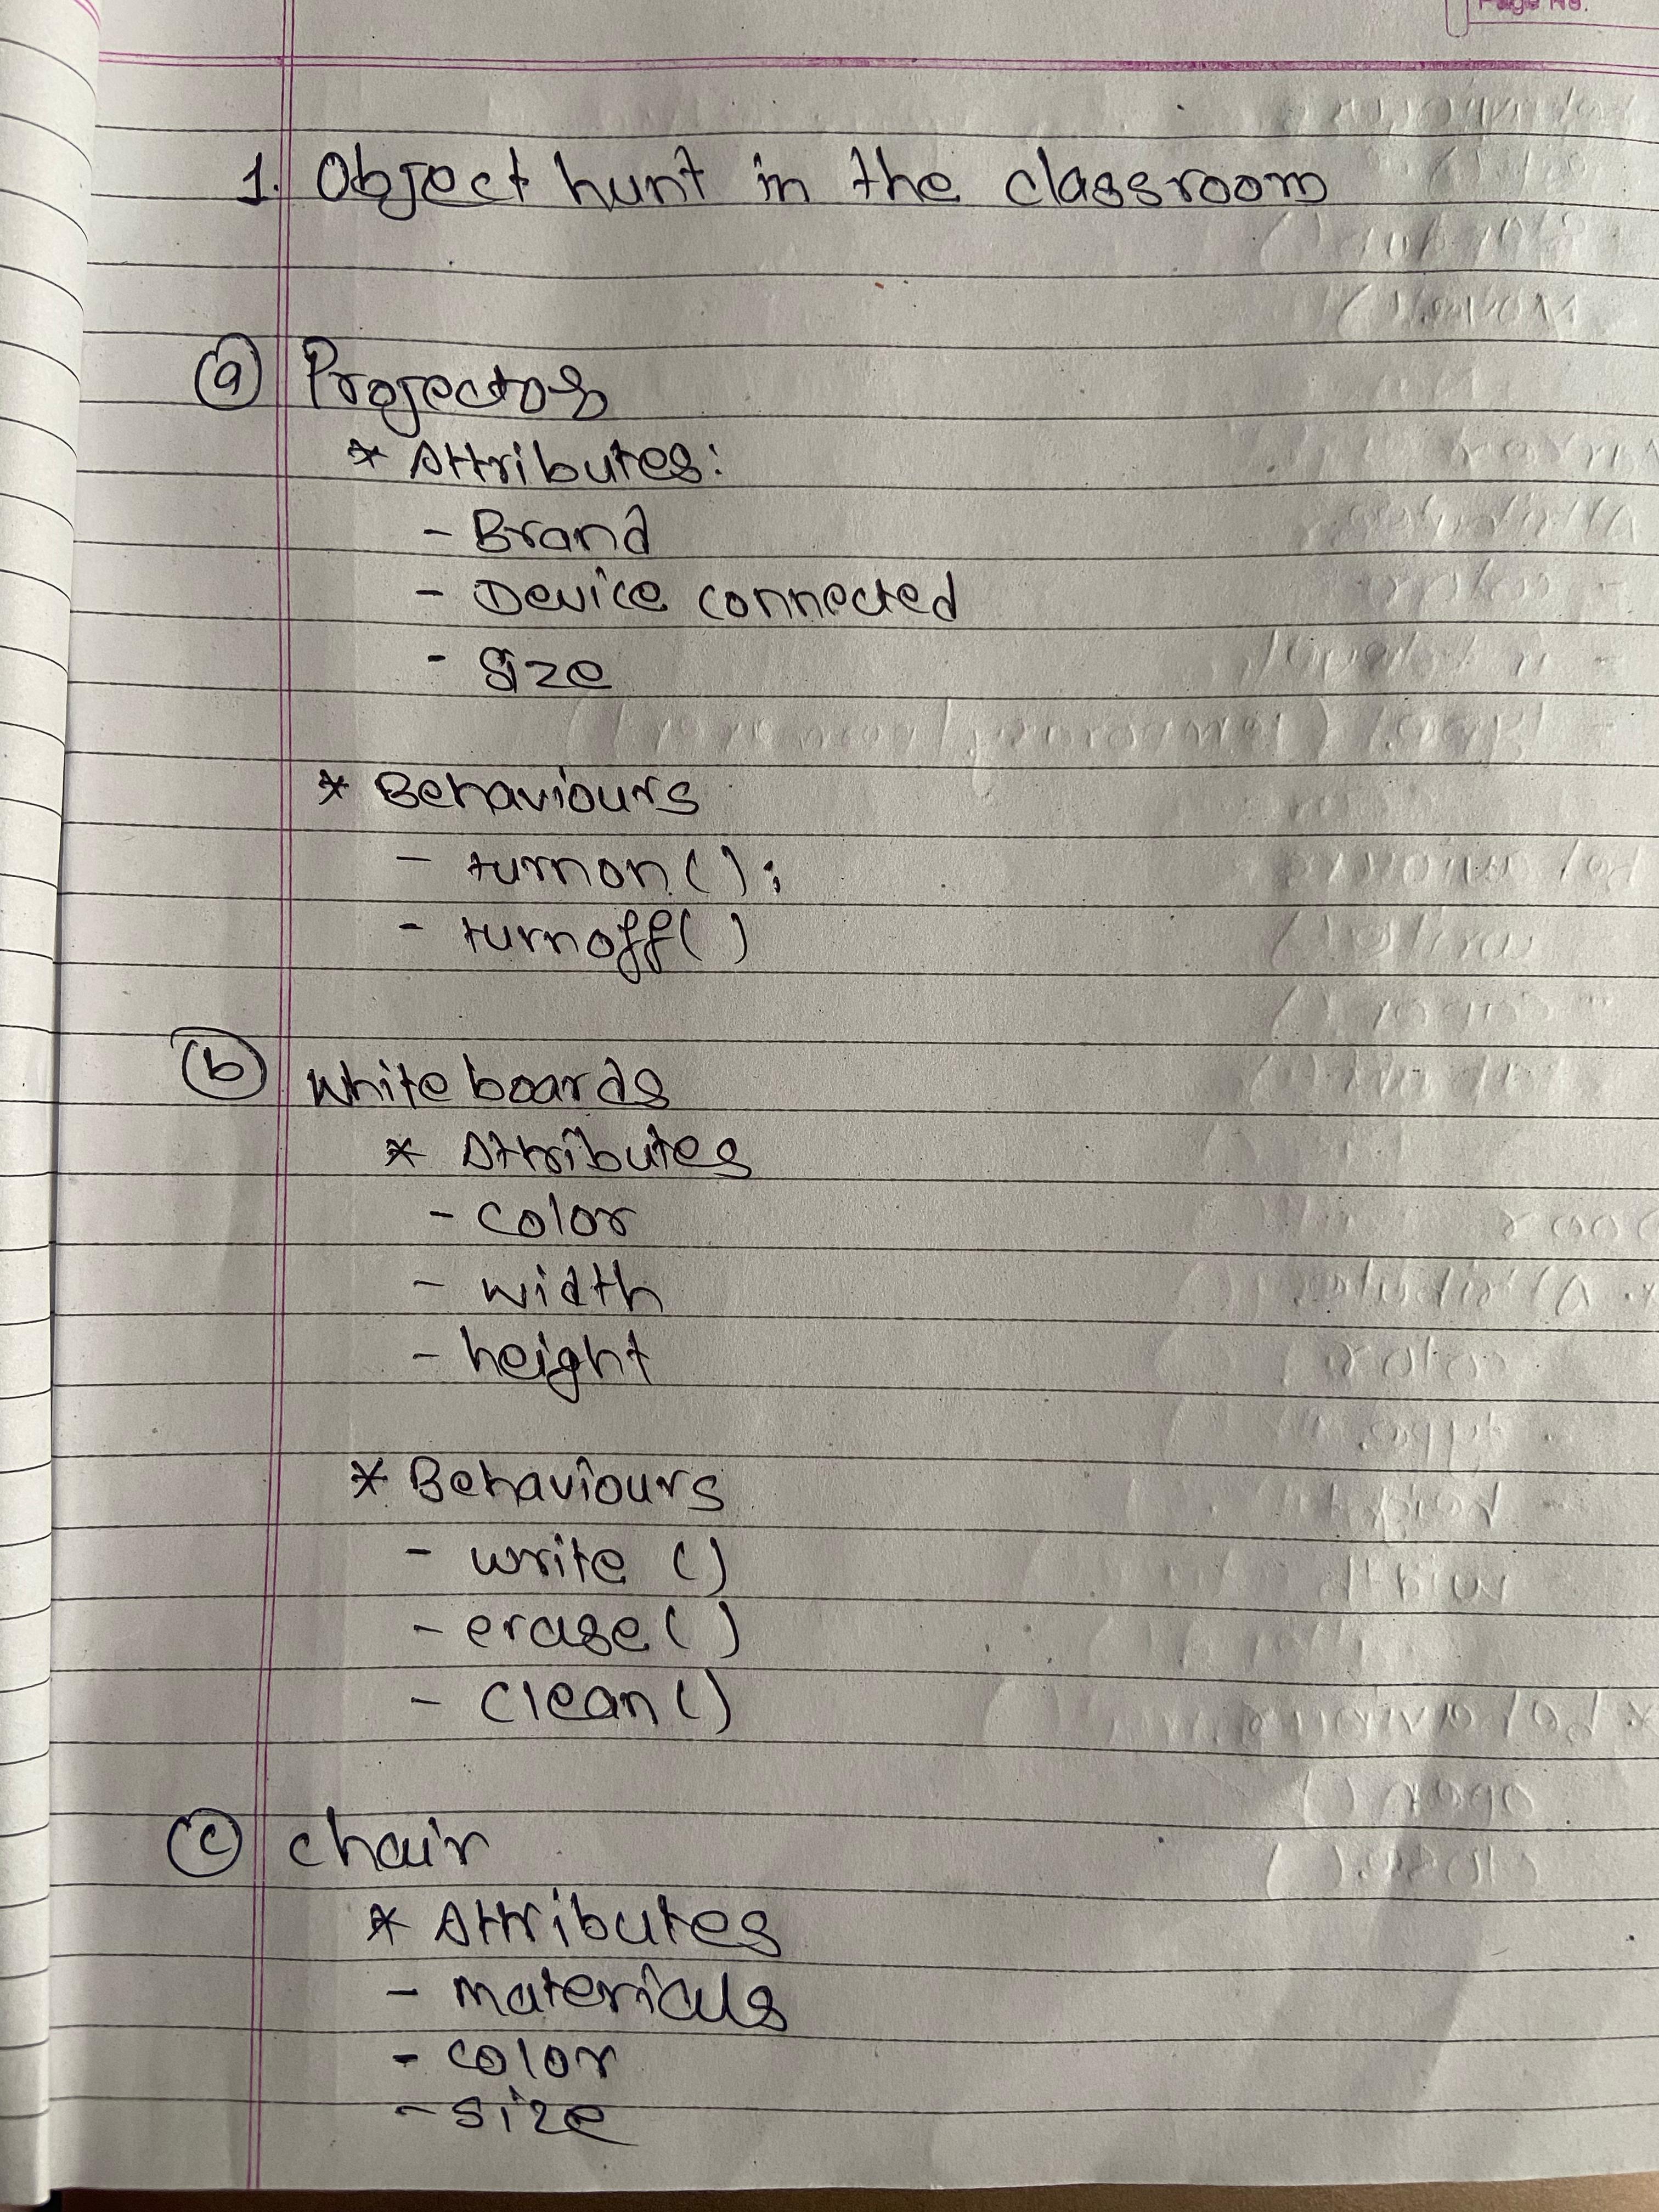 Page No.
1. Object hunt in the classroom
(a) Projector
* Attributes:
- Brand
- Device connected
- Size
* Behaviours
- turnon();
- turnoff()
(b) White boards
* Attributes
- color
- width
- height
* Behaviours
- write ()
- erase()
- clean()
(c) chair
* Attributes
- materials
- color
- size